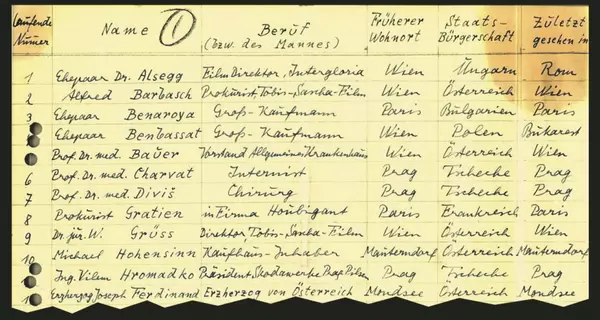 Laufende Numer Name 1 Beruf (bzw. des Mannes) Früherer Wohnort Staats-Bürgerschaft Zuletzt gesehen in
1 Ehepaar Dr. Alsegg Film Direktor, Intergloria Wien Ungarn Rom
2 Alfred Barbasch Prokurist, Tobis-Sascha-Film Wien Österreich Wien
3 Ehepaar Benaroya Groß-Kaufmann Paris Bulgarien Paris
Ehepaar Benbassat Groß-Kaufmann Wien Polen Bukarest
Prof. Dr. med. Bauer Vorstand Allgemeines Krankenhaus Wien Österreich Wien
6 Prof. Dr. med. Charvat Internist Prag Tscheche Prag
7 Prof. Dr. med. Diviš Chirurg Prag Tscheche Prag
8 Prokurist Gratien in Firma Houbigant Paris Frankreich Paris
9 Dr. jur. W. Grüss Direktor, Tobis-Sascha-Film Wien Österreich Wien
10 Michael Hohensinn Kaufhaus-Inhaber Mauterndorf Österreich Mauterndorf
Ing. Vilem Hromadko Präsident Skodawerke Prag Pilsen Prag Tscheche Prag
Erzherzog Joseph Ferdinand Erzherzog von Österreich Mondsee Österreich Mondsee